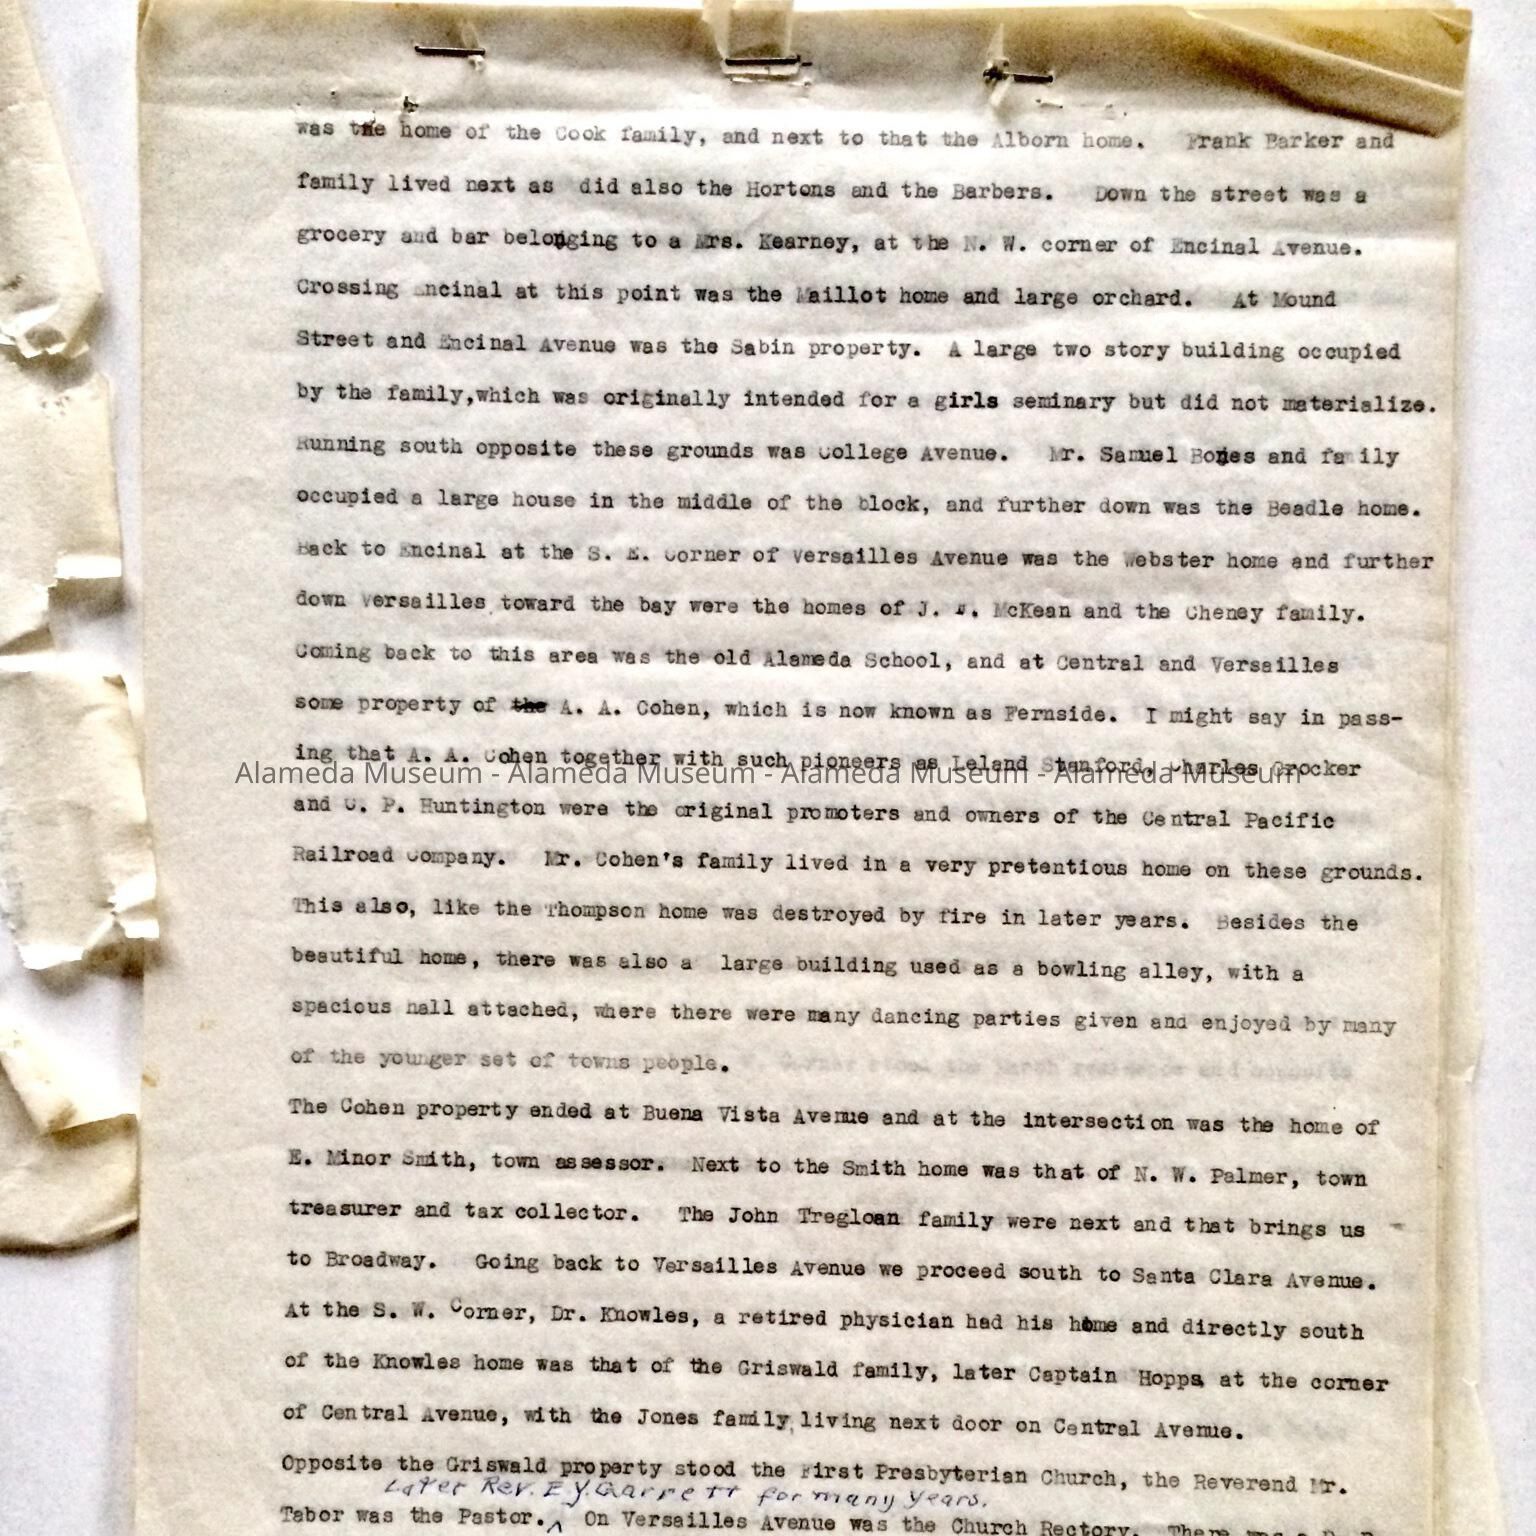 was the home of the Cook family, and next to that the Alborn home. Frank Barker and
family lived next as did also the Hortons and the Barbers. Down the street was a
grocery and bar belonging to a Mrs. Kearney, at the N. W. corner of Encinal Avenue.
Crossing Encinal at this point was the Maillot home and large orchard. At Mound
Street and Encinal Avenue was the Sabin property. A large two story building occupied
by the family,which was originally intended for a girls seminary but did not materialize.
Running south opposite these grounds was College Avenue. Mr. Samuel and family
occupied a large house in the middle of the block, and further down was the Beadle home.
Back to Encinal at the S. E. Corner of Versailles Avenue was the Webster home and further
down Versailles toward the bay were the homes of J. McKean and the Cheney family.
Coming back to this area was the old Alameda School, and at Central and Versailles
some property of the A. A. Cohen, which is now known as Fernside. I might say in pass-
ing that A. A. Cohen together with such pioneers as Leland Stanford, Charles Crocker
Alameda Museum - Alameda Museum - Alameda Museum - Alameda Museum
and C. P. Huntington were the original promoters and owners of the Central Pacific
Railroad Company. Mr. Cohen's family lived in a very pretentious home on these grounds.
This also, like the Thompson home was destroyed by fire in later years. Besides the
beautiful home, there was also a large building used as a bowling alley, with a
spacious hall attached, where there were many dancing parties given and enjoyed by many
of the younger set of towns people.
The Cohen property ended at Buena Vista Avenue and at the intersection was the home of
E. Minor Smith, town assessor. Next to the Smith home was that of N. W. Palmer, town
treasurer and tax collector. The John Tregloan family were next and that brings us
to Broadway. Going back to Versailles Avenue we proceed south to Santa Clara Avenue.
At the S. W. Corner, Dr. Knowles, a retired physician had his home and directly south
of the Knowles home was that of the Griswald family, later Captain Hopps at the corner
of Central Avenue, with the Jones family, living next door on Central Avenue.
Opposite the Griswald property stood the First Presbyterian Church, the Reverend Mr.
Later Rev. E.Y. Garrett for many years.
Tabor was the Pastor. On Versailles Avenue was the Church Rectory. There was a